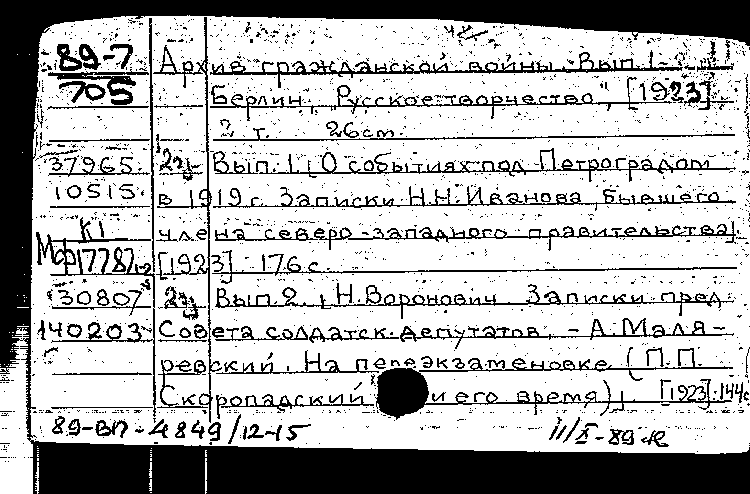 89-7 Архив гражданской войны. Вып. 1-
705 Берлин, „Русское творчество", [1923].
2 т. 26 см.
37965. 2э. Вып. 1. [О событиях под Петроградом
10515. в 1919 г. Записки Н.Н. Иванова, бывшего
К1 члена северо-западного правительства].
Мф17787 [1923]. 176 с.
30807 2э. Вып. 2. [Н. Воронович. Записки пред.
140203 Совета солдатск. депутатов. - А. Маля-
ревский. На переэкзаменовке (П.П.
Скоропадский и его время)]. [1923]. 144 с
89-ВП-4849/12-15 II/X-89